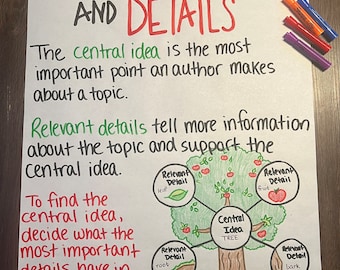 AND DETAILS
The central idea is the most
important point an author makes
about a topic.
Relevant details tell more information
about the topic and support the
central idea.
To find the
central idea,
decide what the
most important
details have in
Relevant
Detail
leaf
Relevant
Detail
fruit
Central
Idea
TREE
Relevant
Detail
roots
Relevant
Detail
bark